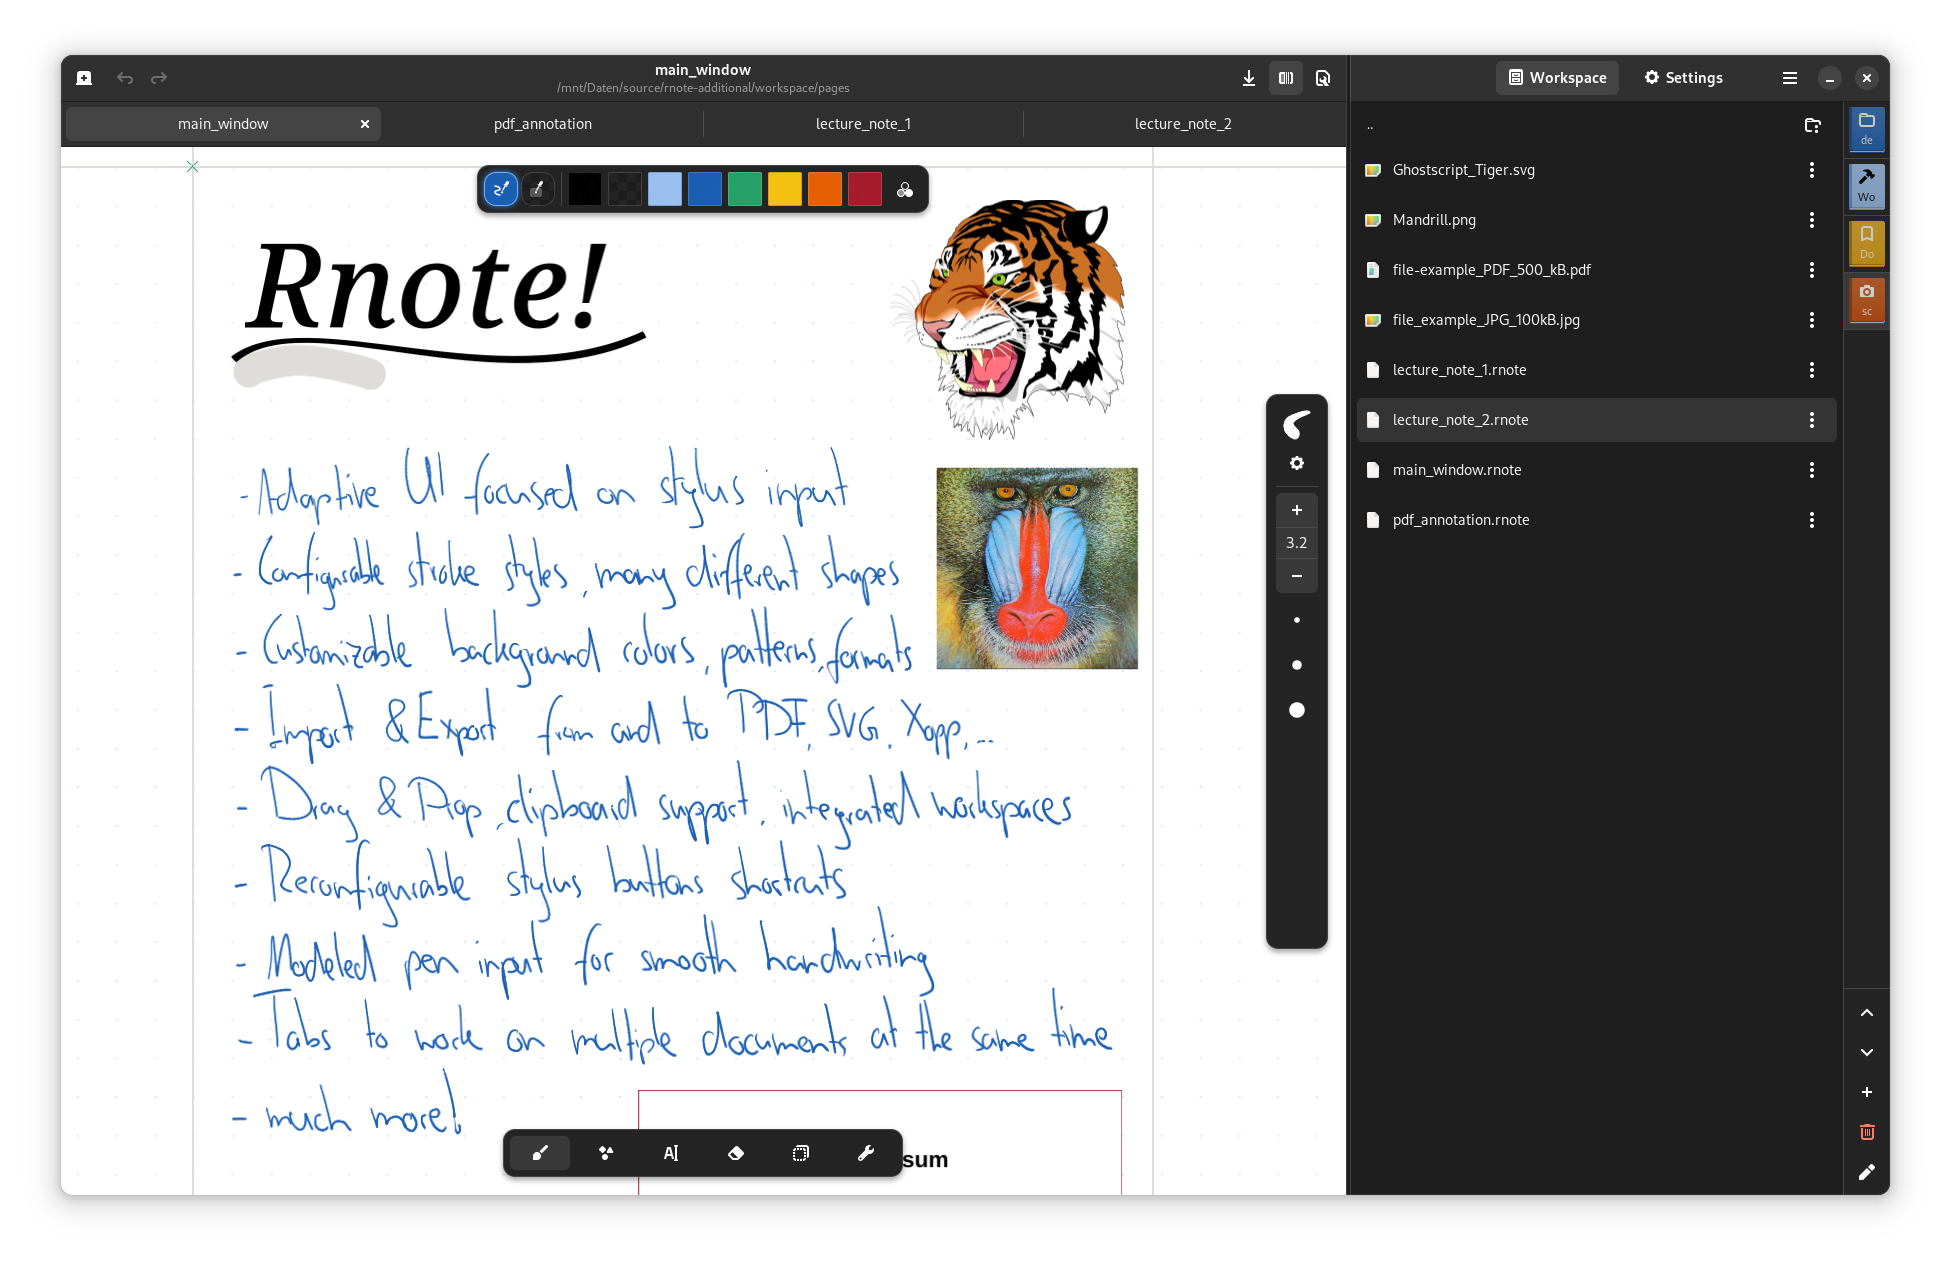 main_window
/mnt/Daten/source/rnote-additional/workspace/pages
Workspace
Settings
main_window
pdf_annotation
lecture_note_1
lecture_note_2
Rnote!
- Adaptive UI focused on stylus input
- Configurable stroke styles, many different shapes
- Customizable background colors, patterns, formats
- Import & Export from and to PDF, SVG, Xopp, ...
- Drag & Drop, clipboard support, integrated workspaces
- Reconfigurable stylus buttons shortcuts
- Modeled pen input for smooth handwriting
- Tabs to work on multiple documents at the same time
- much more!
sum
3.2
..
Ghostscript_Tiger.svg
Mandrill.png
file-example_PDF_500_kB.pdf
file_example_JPG_100kB.jpg
lecture_note_1.rnote
lecture_note_2.rnote
main_window.rnote
pdf_annotation.rnote
de
Wo
Do
sc